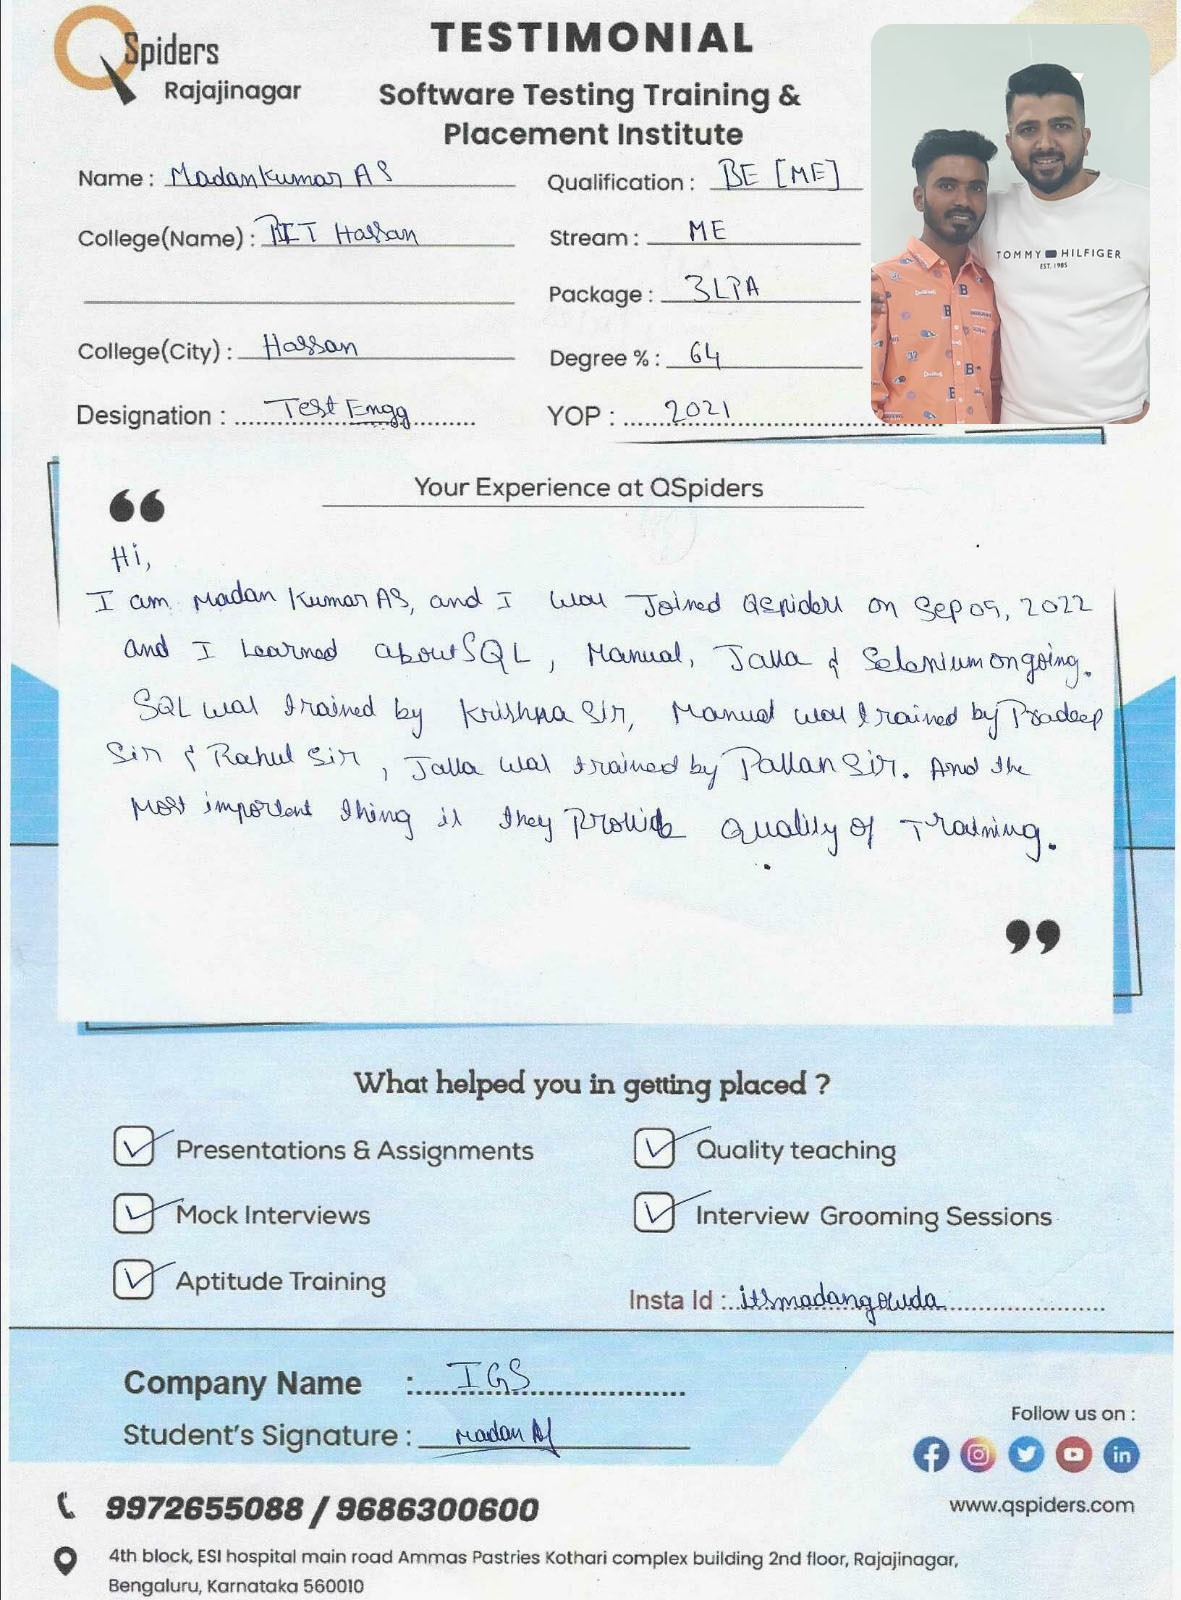 QSpiders
Rajajinagar
TESTIMONIAL
Software Testing Training &
Placement Institute
Name : Madankumar A S
Qualification : BE [ME]
College(Name) : Hassan
Stream : ME
Package : 3LPA
College(City) : Hassan
Degree % : 64
Designation : Test Engg
YOP : 2021
TOMMY HILFIGER
EST. 1985
Your Experience at QSpiders
Hi,
I am Madan Kumar AS, and I was Joined Qspiders on Sep 09, 2022
and I Learned about SQL, Manual, Java & Selenium ongoing.
SQL was trained by Krishna Sir, Manual was trained by Pradeep
Sir & Rahul Sir, Java was trained by Pavan Sir. And the
Most important thing is they Provide Quality of Training.
What helped you in getting placed ?
Presentations & Assignments
Quality teaching
Mock Interviews
Interview Grooming Sessions
Aptitude Training
Insta Id : itsmadangowda
Company Name : IGS
Student's Signature : Madan AS
Follow us on :
9972655088 / 9686300600
www.qspiders.com
4th block, ESI hospital main road Ammas Pastries Kothari complex building 2nd floor, Rajajinagar,
Bengaluru, Karnataka 560010